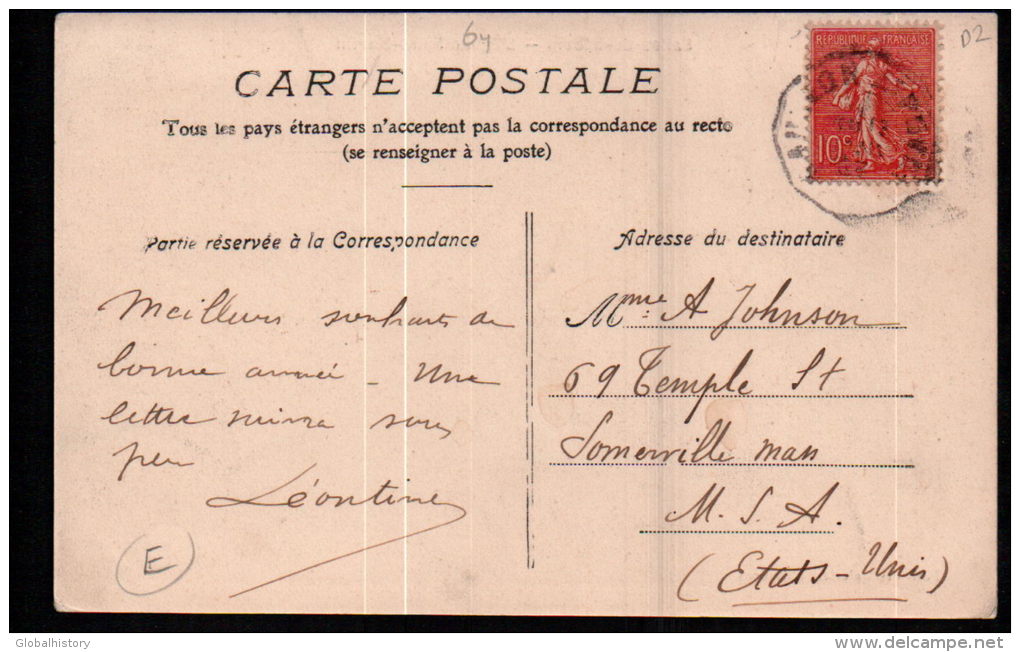 64
D2
REPUBLIQUE FRANÇAISE
10c
CARTE POSTALE
Tous les pays étrangers n'acceptent pas la correspondance au recto
(se renseigner à la poste)
Partie réservée à la Correspondance
Meilleurs souhaits de
bonne année – Une
lettre suivra sous
peu
Léontine
E
Adresse du destinataire
Mme A Johnson
69 Temple St
Somerville mass
U. S. A.
(Etats-Unis)
Globalhistory
www.delcampe.net